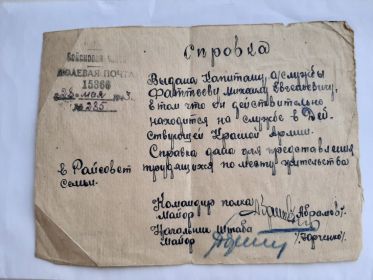 Справка
Войсковая часть
ПОЛЕВАЯ ПОЧТА
15366
"26" мая 1943 г.
№ 285
Выдана Капитану а/службы
Михаилу Евгеньевичу,
в том что он действительно
находится на службе в Дей-
ствующей Красной Армии.
Справка дана для предоставления
трудящихся по месту жительства
в Райсовет
семьи.
Командир полка
Майор /Абрамов/.
Начальник Штаба
Майор /Горченко/